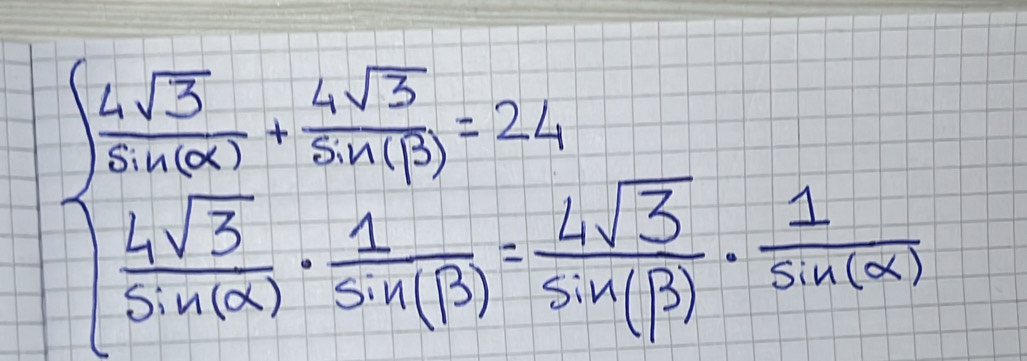 4√3/sin(α) + 4√3/sin(β) = 24
4√3/sin(α) · 1/sin(β) = 4√3/sin(β) · 1/sin(α)